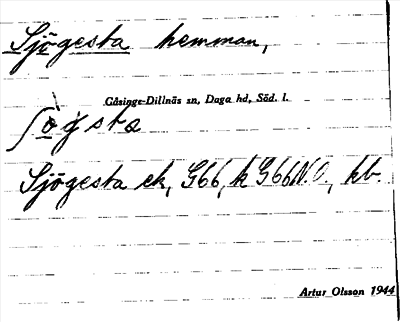 Sjögesta hemman,
Gåsinge-Dillnäs sn, Daga hd, Söd. l.
Sjögesta ek, G66, k G66 N.O., kb.
Artur Olsson 1944